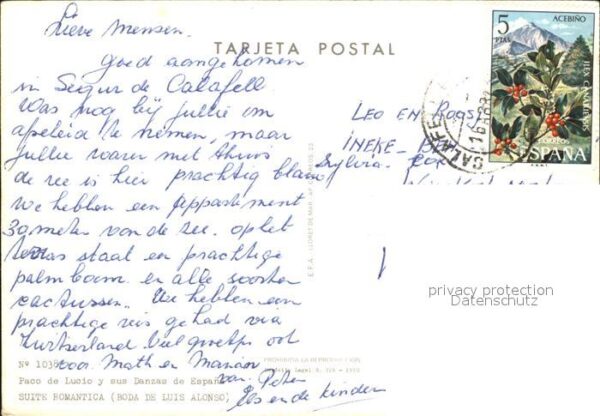 Lieve mensen.
TARJETA POSTAL
goed aangekomen
in Segur de Calafell.
Was nog bij jullie om
afscheid te nemen, maar
jullie waren niet thuis
de zee is hier prachtig blauw
we hebben een appartement
30 meter van de zee. op het
terras staat een prachtige
palmboom en alle soorten
cactussen. We hebben een
prachtige reis gehad via
Zwitserland veel groetjes ook
voor Math en Marian
van Peter
Els en de kinderen
Leo en
Ineke
Sylvia
5
PTAS
ACEBIÑO
ILEX CANARIENSIS
CORREOS
ESPAÑA
privacy protection
Datenschutz
PROHIBIDA LA REPRODUCCION
Paco de Lucio y sus Danzas de España
SUITE ROMANTICA (BODA DE LUIS ALONSO)